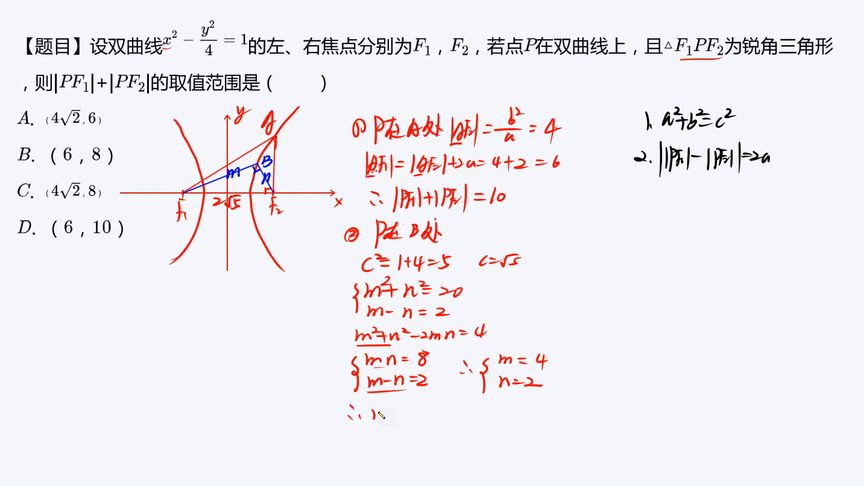 【题目】设双曲线x²-y²/4=1的左、右焦点分别为F₁，F₂，若点P在双曲线上，且△F₁PF₂为锐角三角形
，则|PF₁|+|PF₂|的取值范围是（ ）
A.（4√2,6）
B.（6，8）
C.（4√2,8）
D.（6，10）
y
A
B
m
n
F₁
2√5
F₂
x
① P在A处 |AF₂|=b²/a=4
|AF₁|=|AF₂|+2a=4+2=6
∴|PF₁|+|PF₂|=10
② P在B处
c²=1+4=5 c=√5
{m²+n²=20
m-n=2
m²+n²-2mn=4
{mn=8
m-n=2
∴{m=4
n=2
∴
1. a²+b²=c²
2. ||PF₁|-|PF₂||=2a